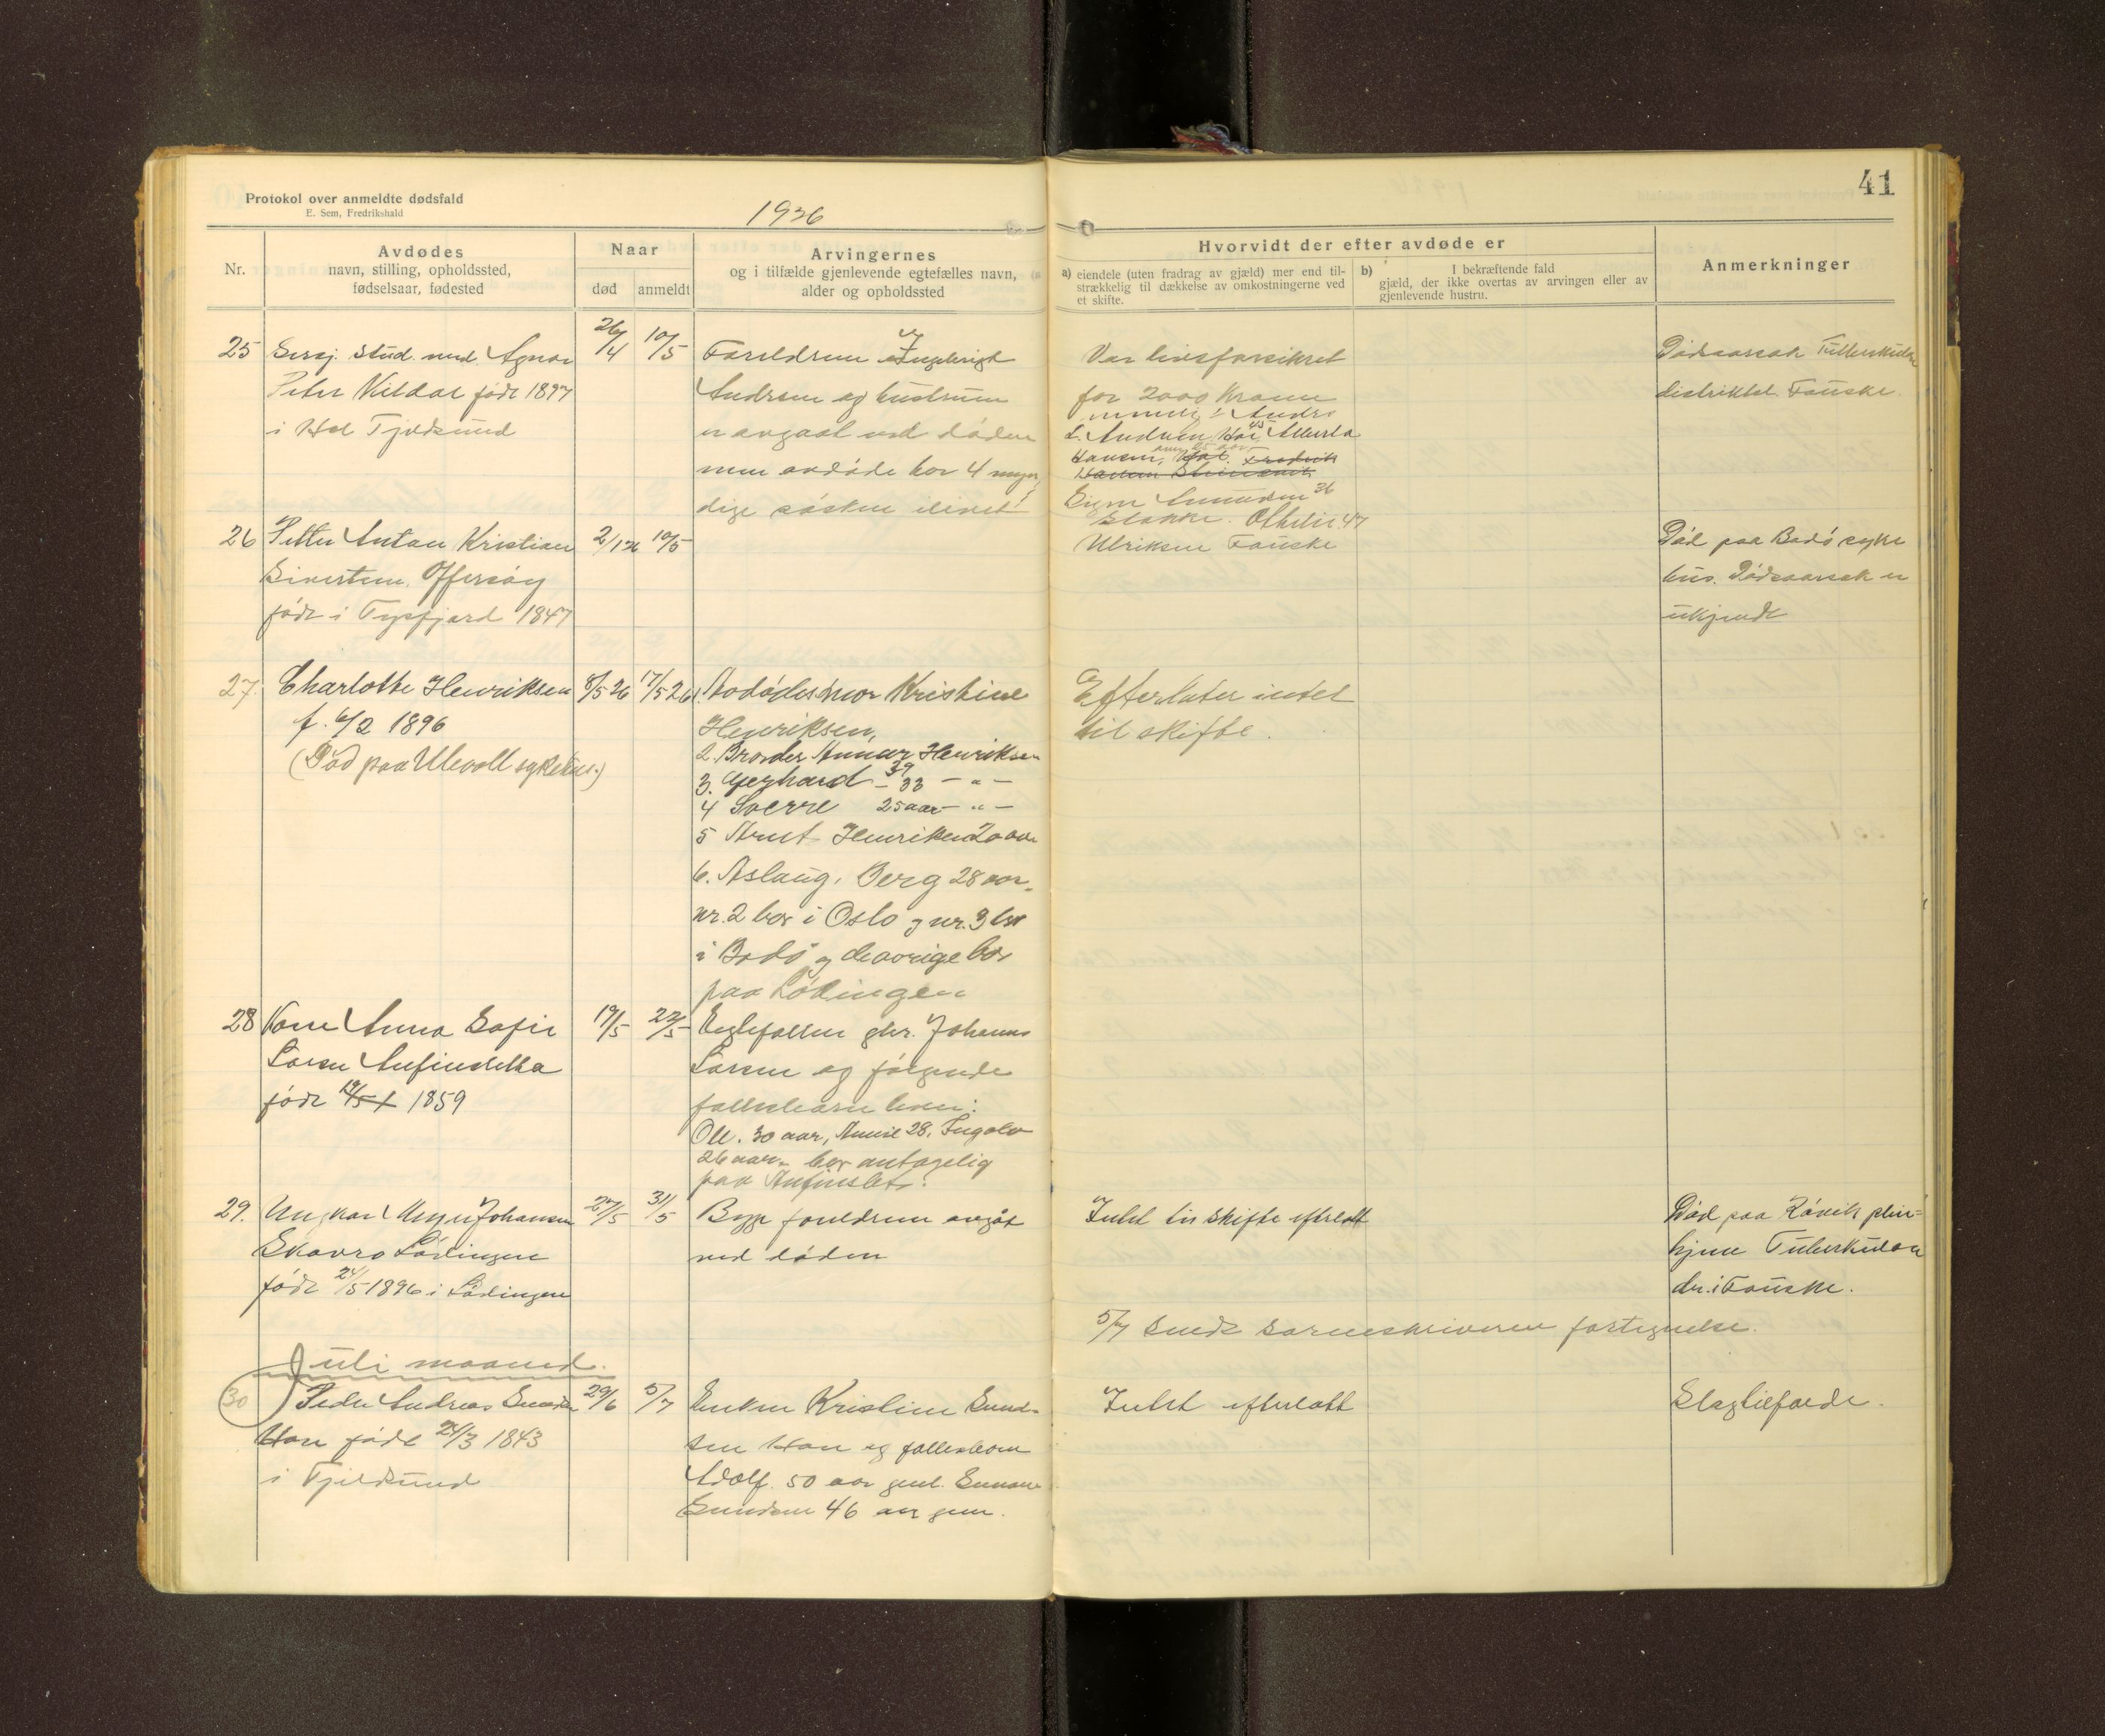 41
Protokol over anmeldte dødsfald
E. Sem, Fredrikshald
1926
Nr.
Avdødes
navn, stilling, opholdssted,
fødselsaar, fødested
Naar
død
anmeldt
Arvingernes
og i tilfælde gjenlevende egtefælles navn,
alder og opholdssted
Hvorvidt der efter avdøde er
a) eiendele (uten fradrag av gjæld) mer end til-
strækkelig til dækkelse av omkostningerne ved
et skifte.
b) I bekræftende fald
gjæld, der ikke overtas av arvingen eller av
gjenlevende hustru.
Anmerkninger
25 stud. med. Agnar
Peter Kildal født 1897
i Hol Tjeldsund
26/4 10/5
Foreldrene Ingebrigt
Andrsen og hustruen
er avgaat ved døden
men avdøde har 4 myn
dige søsken ilivet
Var livsforsikret
for 2000 Kroner
Andrsen Hol
Hansen,
Signe 36
Othelie 47
Ulriksen Fauske
Dødsaarsak Tuberkulose
distriktet Fauske.
26 Petter Antan Kristian
Sivertsen. Offersøy
født i Tysfjord 1847
2/1 26 10/5
Død paa Bodø syke
hus. Dødsaarsak er
ukjendt
27. Charlotte Henriksen
f. 6/2 1896
(Død paa Ullevoll sykehus.)
8/5 26 17/5 26
1. Avdødes mor Kristine
Henriksen,
2. Broder Annar Henriksen
39
3. Gerhard - 33 - " -
4 Sverre 25 aar - " -
5 Arnt Henriksen 20 aar
6. Aslaug, Berg 28 aar.
nr. 2 bor i Oslo og nr. 3 bor
i Bodø og de øvrige bor
paa Lødingen
Efterlater intet
til skifte.
28 Kone Anna Sofie
Larsen Anfinsletta
født 19/5 1859
19/5 22/5
Egtefellen gbr. Johannes
Larsen og følgende
fellesbarn lever:
Ole. 30 aar, Annie 28, Ingolv
26 aar. bor antagelig
paa Anfinslet.
29. Ungkar Johansen
Skavro Lødingen
født 24/5 1896 i Lødingen
27/5 31/5
Begge foreldrene avgåt
ved døden
Intet til skifte efterlatt
Død paa Røvik pleie-
hjem Tuberkulose
dr. i Fauske.
5/7 sendt sorenskriveren fortegnelse.
Juli maaned.
30 Peder Andreas
Han født 24/3 1843
i Tjeldsund
29/6 5/7
Enken Kristine Sund-
sen Han og fellesbarn
Adolf. 50 aar gml.
46 aar gml.
Intet efterlatt
Slagtilfælde.